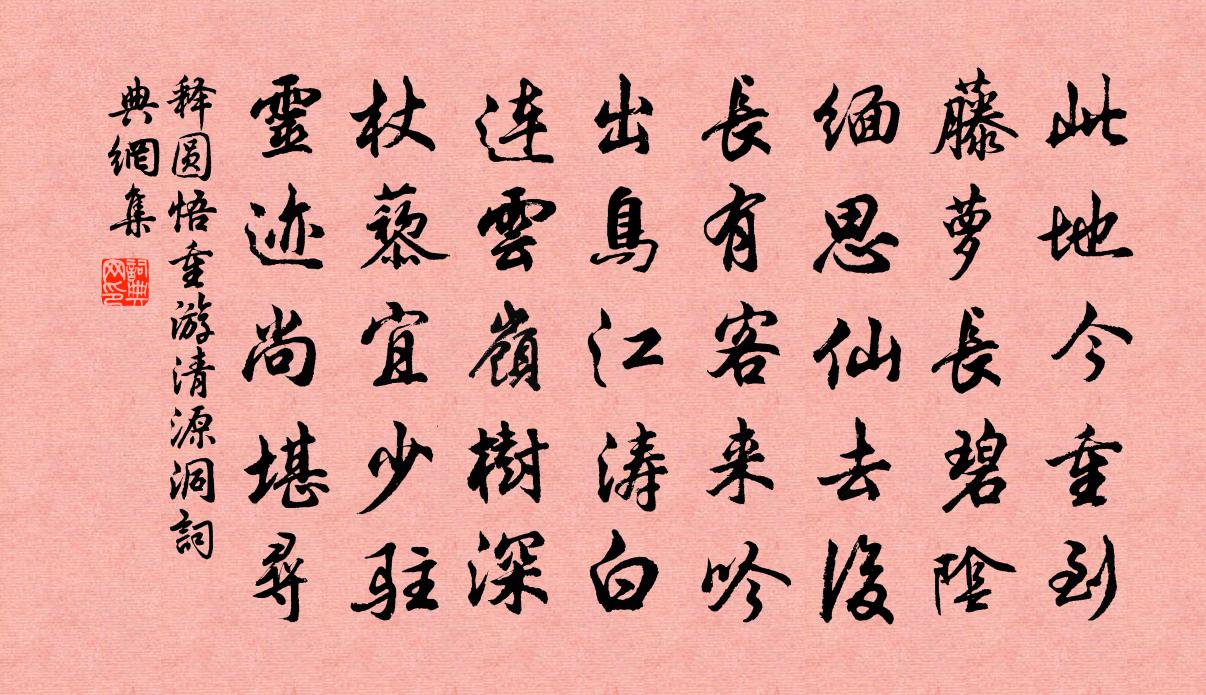 此地今重到
藤萝長碧陰
緬思仙去後
長有客来吟
出鳥江涛白
连雲嶺樹深
杖藜宜少駐
靈迹尚堪尋
释圆悟重游清源洞詞
典網集
詞典
网印